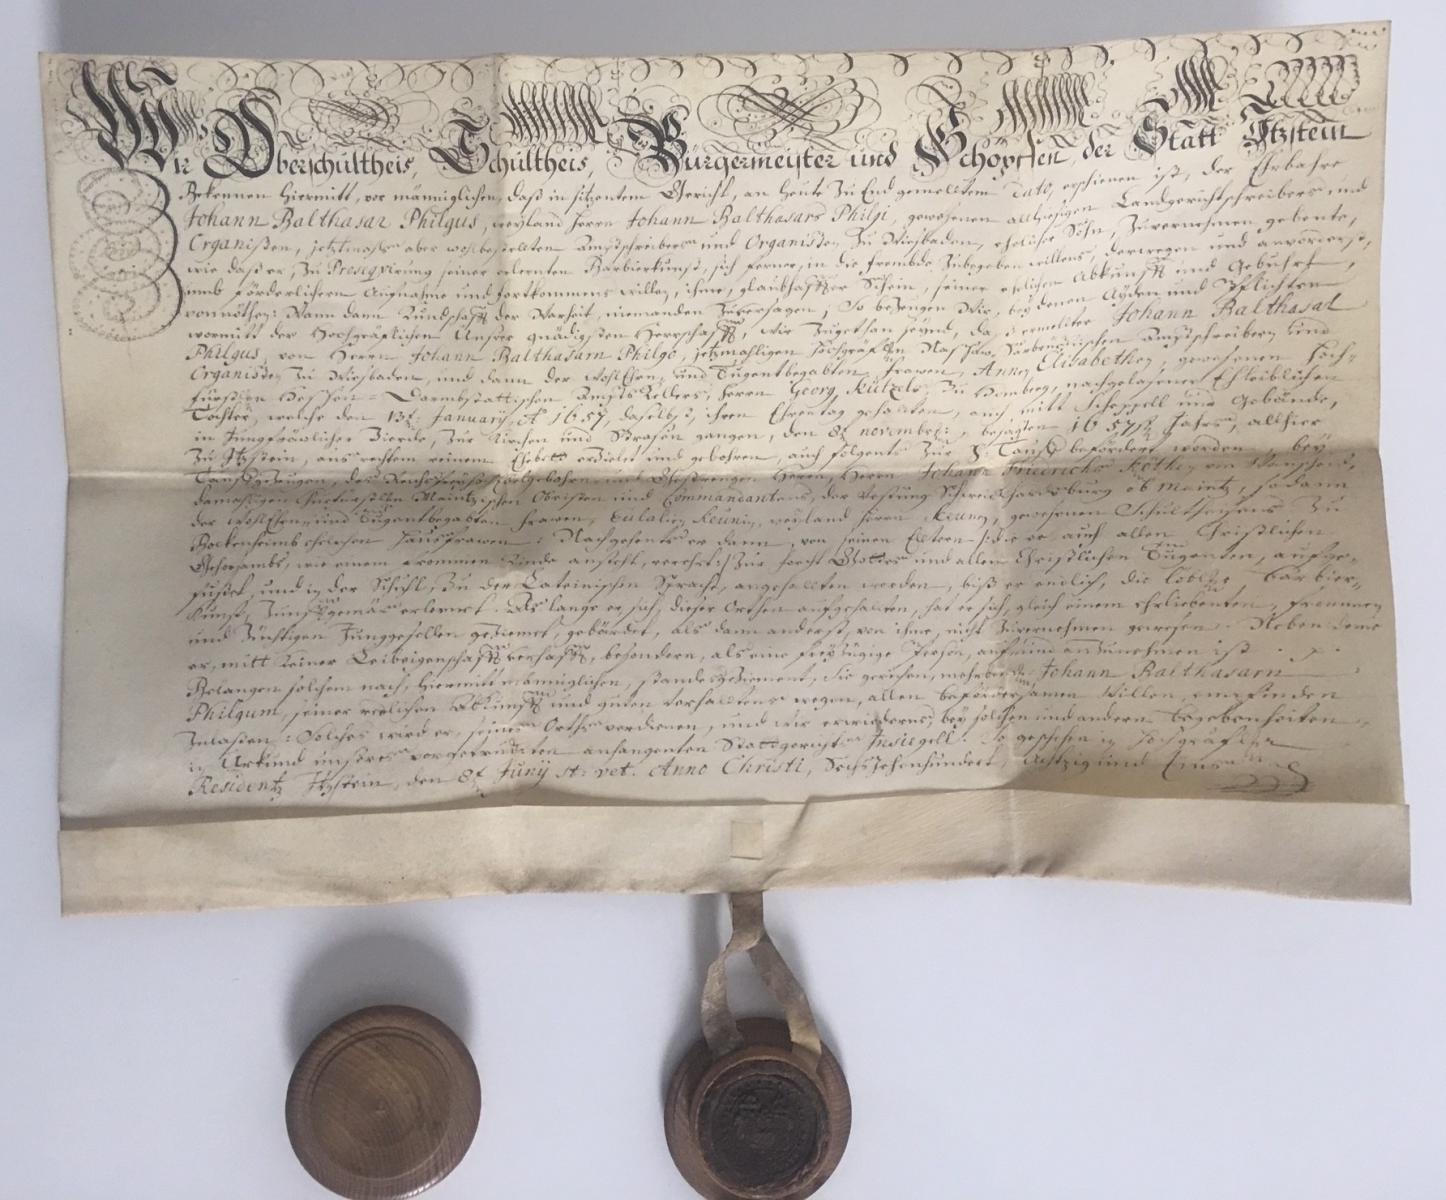 Wir Oberschultheis, Schultheis, Bürgermeister und Schöpffen der Statt Itzstein
Bekennen hiermitt, vor männiglichen, daß in sitzentem Gericht, an heute zu End gemeltem Dato, erschienen ist, der Ehrbahre
Johann Balthasar Philgus, weyland Herrn Johann Balthasars Philgi, gewesenen allhiesigen Landgerichtschreibers und
Organisten, jetztmahls aber wohlbestellten Amptschreibers und Organisten zu Wießbaden, ehelicher Sohn, zuvernehmen gebente,
wie daß er, zu Prosequirung seiner erlernten Barbierkunst, sich ferner, in die frembde zubegeben willens, derwegen und anvorderst,
umb förderlichern Aufnahme und fortkommens willen, ihme, glaubhaffter Schein, seiner ehelichen Abkunfft und Gebuhrt,
vonnöthen: Wann dann Kundschafft der Warheit, niemanden zuversagen, So bezeugen Wir, bey denen Ayden und Pflichten
wormitt der Hochgräflichen Unsrer gnädigsten Herrschafft, wir zugethan seynd, daß ermelter Johann Balthasar
Philgus, von Herrn Johann Balthasarn Philgo, jetzmahligen Hochgräfl. Nassaw Sarbrückischen Amptschreibern und
Organisten zu Wießbaden, und dann der WohlEhrn- und Tugentbegabten Frawen, Annen Elisabethen, gewesenen Hoch-
fürstlen Hessen-Darmbstattischen Ampts Kellers, Herrn Georg Kützels, zu Homberg, nachgelasener Eheleiblichen
Tochter, welche den 13t. January, Ao 1657, daselbst, ihren Ehrentag gehalten, auch mitt Scheppell und Gebände,
in Jungfräwlicher Zierde, zur Kirchen und Strasen gangen, den 8t novembr:, besagten 1657 Jahrs, allhier
zu Itzstein, aus rechtem reinem Ehebett erziehlet und gebohren, auch folgents zur H. Tauff befördert worden, bey
Tauffgezeugen, des Herrn Johann Friedrichs Köthen von
damahligen Churfürstlen Maintzischen Obristen und Commandantens, der Vestung Schweickhardsburg ob Maintz, sodann
der WohlEhrn- und Tugentbegabten Frawen, Eulalien Keunin, weyland Herrn Keunen, gewesenen Schultheisens zu
Bockenheimb ehelichen Hausfrawen: Nachgehents er dann, von seinen Eltern, die er auch allen Christlichen
Gehorsambs, wie einem frommen Kinde ansteht, verehrt, zur forcht Gottes und allen Christlichen Tugenten, aufge-
führet, und in der Schuhl, zu der Lateinischen Sprach, angehalten worden, biß er endlich, die löbliche Barbier-
Kunst, zunfftgemäs erlernet. So lange er sich, dieser Orthen aufgehalten, hat er sich, gleich einem Ehrliebenten, frommen
und züchtigen Junggesellen geziemet, gebärdet, als dann anderst, von ihme, nicht zuvernehmen gewesen. Neben deme
er, mitt keiner Leibeigenschafft verhafft, besondern, als eine freyzügige Person, auf und anzunehmen ist.
Gelangen solchem nach, hiermitt männiglichen, standesgeziement, Sie geruhen, mehrbem. Johann Balthasarn
Philgum, seiner redlichen Abkunfft und guten verhaltens wegen, allen befördersamen Willen empfinden
zulassen: Solches wird er, seines Orths verdienen, und wir erwiederns, bey solchen und andern begebenheiten
in Urkund unseres vorgetruckten anhangenten Stattgerichts Insiegell. So geschehen in Hochgräflicher
Residentz Itzstein, den 8t Juny st: vet. Anno Christi, Sechszehenhundert, Achtzig und Eins